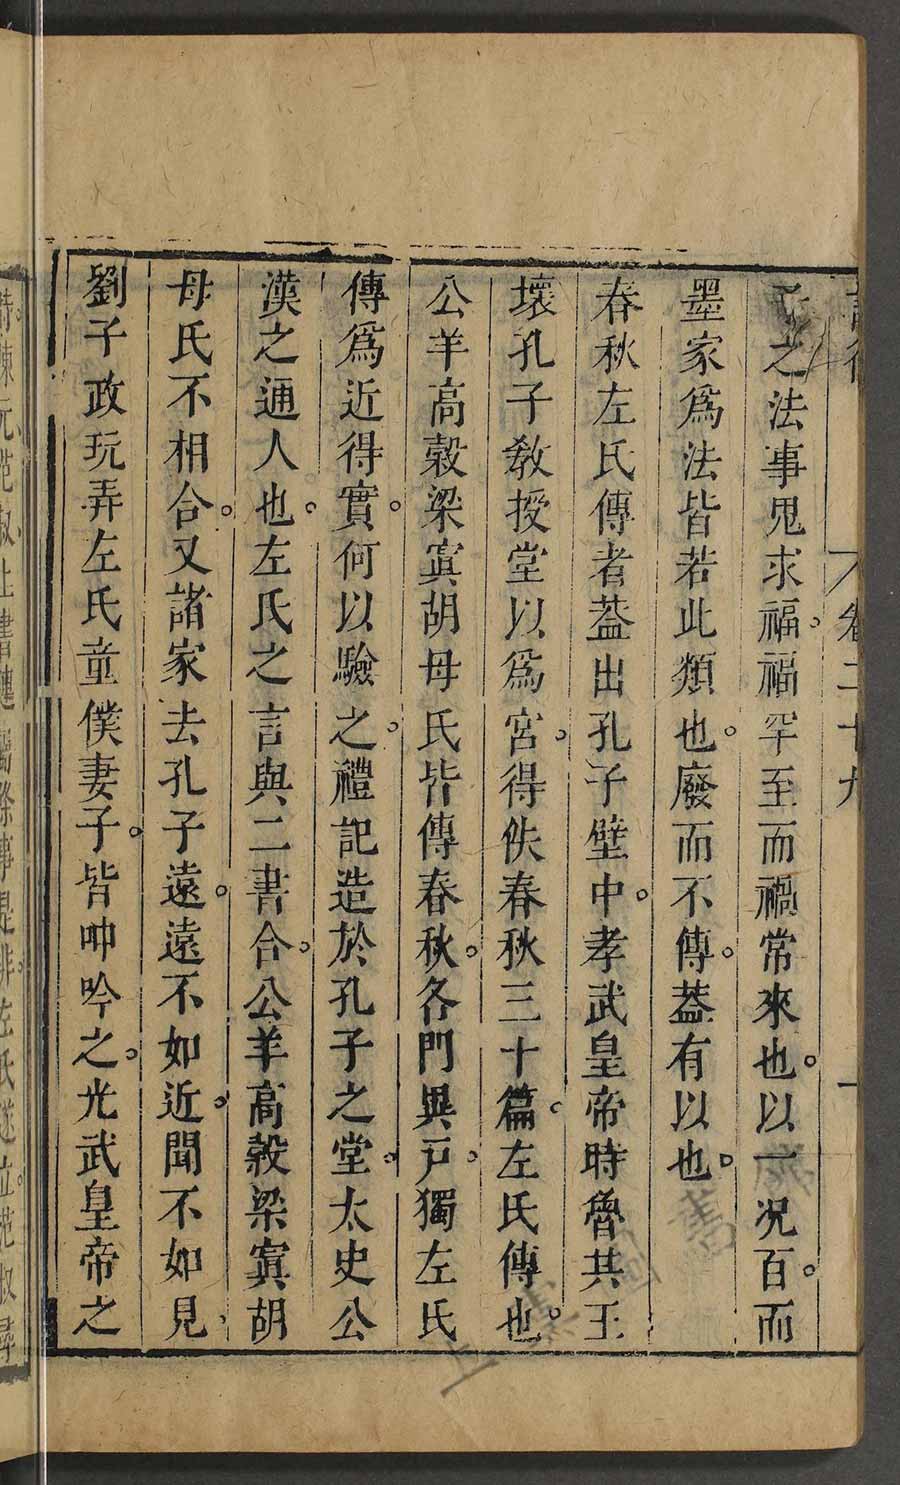 論衡 卷二十九 一
之法事鬼求福福罕至而禍常來也以一况百而
墨家爲法皆若此類也廢而不傳蓋有以也
春秋左氏傳者葢出孔子壁中孝武皇帝時魯共王
壞孔子敎授堂以爲宮得佚春秋三十篇左氏傳也
公羊高榖梁寘胡母氏皆傳春秋各門異戸獨左氏
傳爲近得實何以驗之禮記造於孔子之堂太史公
漢之通人也左氏之言與二書合公羊高榖梁寘胡
母氏不相合又諸家去孔子遠遠不如近聞不如見
劉子政玩弄左氏童僕妻子皆呻吟之光武皇帝之